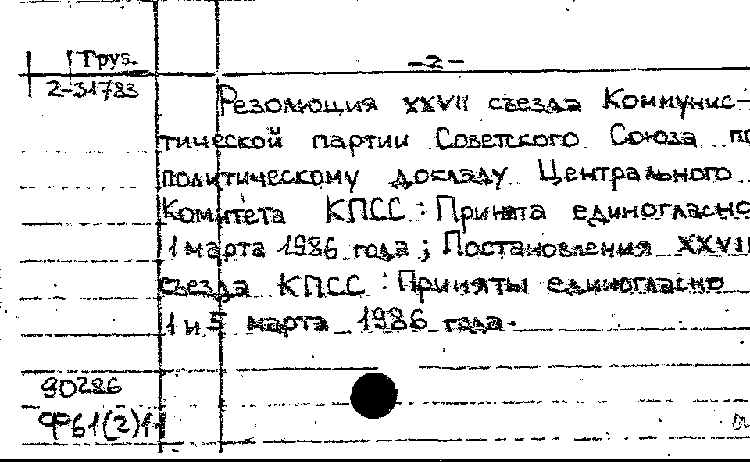 Груз. -2-
2-31783
Резолюция XXVII съезда Коммунис-
тической партии Советского Союза по
политическому докладу Центрального
Комитета КПСС : Принята единогласно
1 марта 1986 года ; Постановления XXVII
съезда КПСС : Приняты единогласно
1 и 5 марта 1986 года.
90286
Ф61(2)11